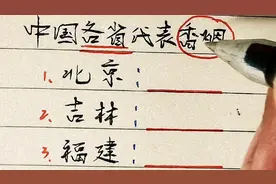 中国各省代表香烟
1. 北京：
2. 吉林：
3. 福建：